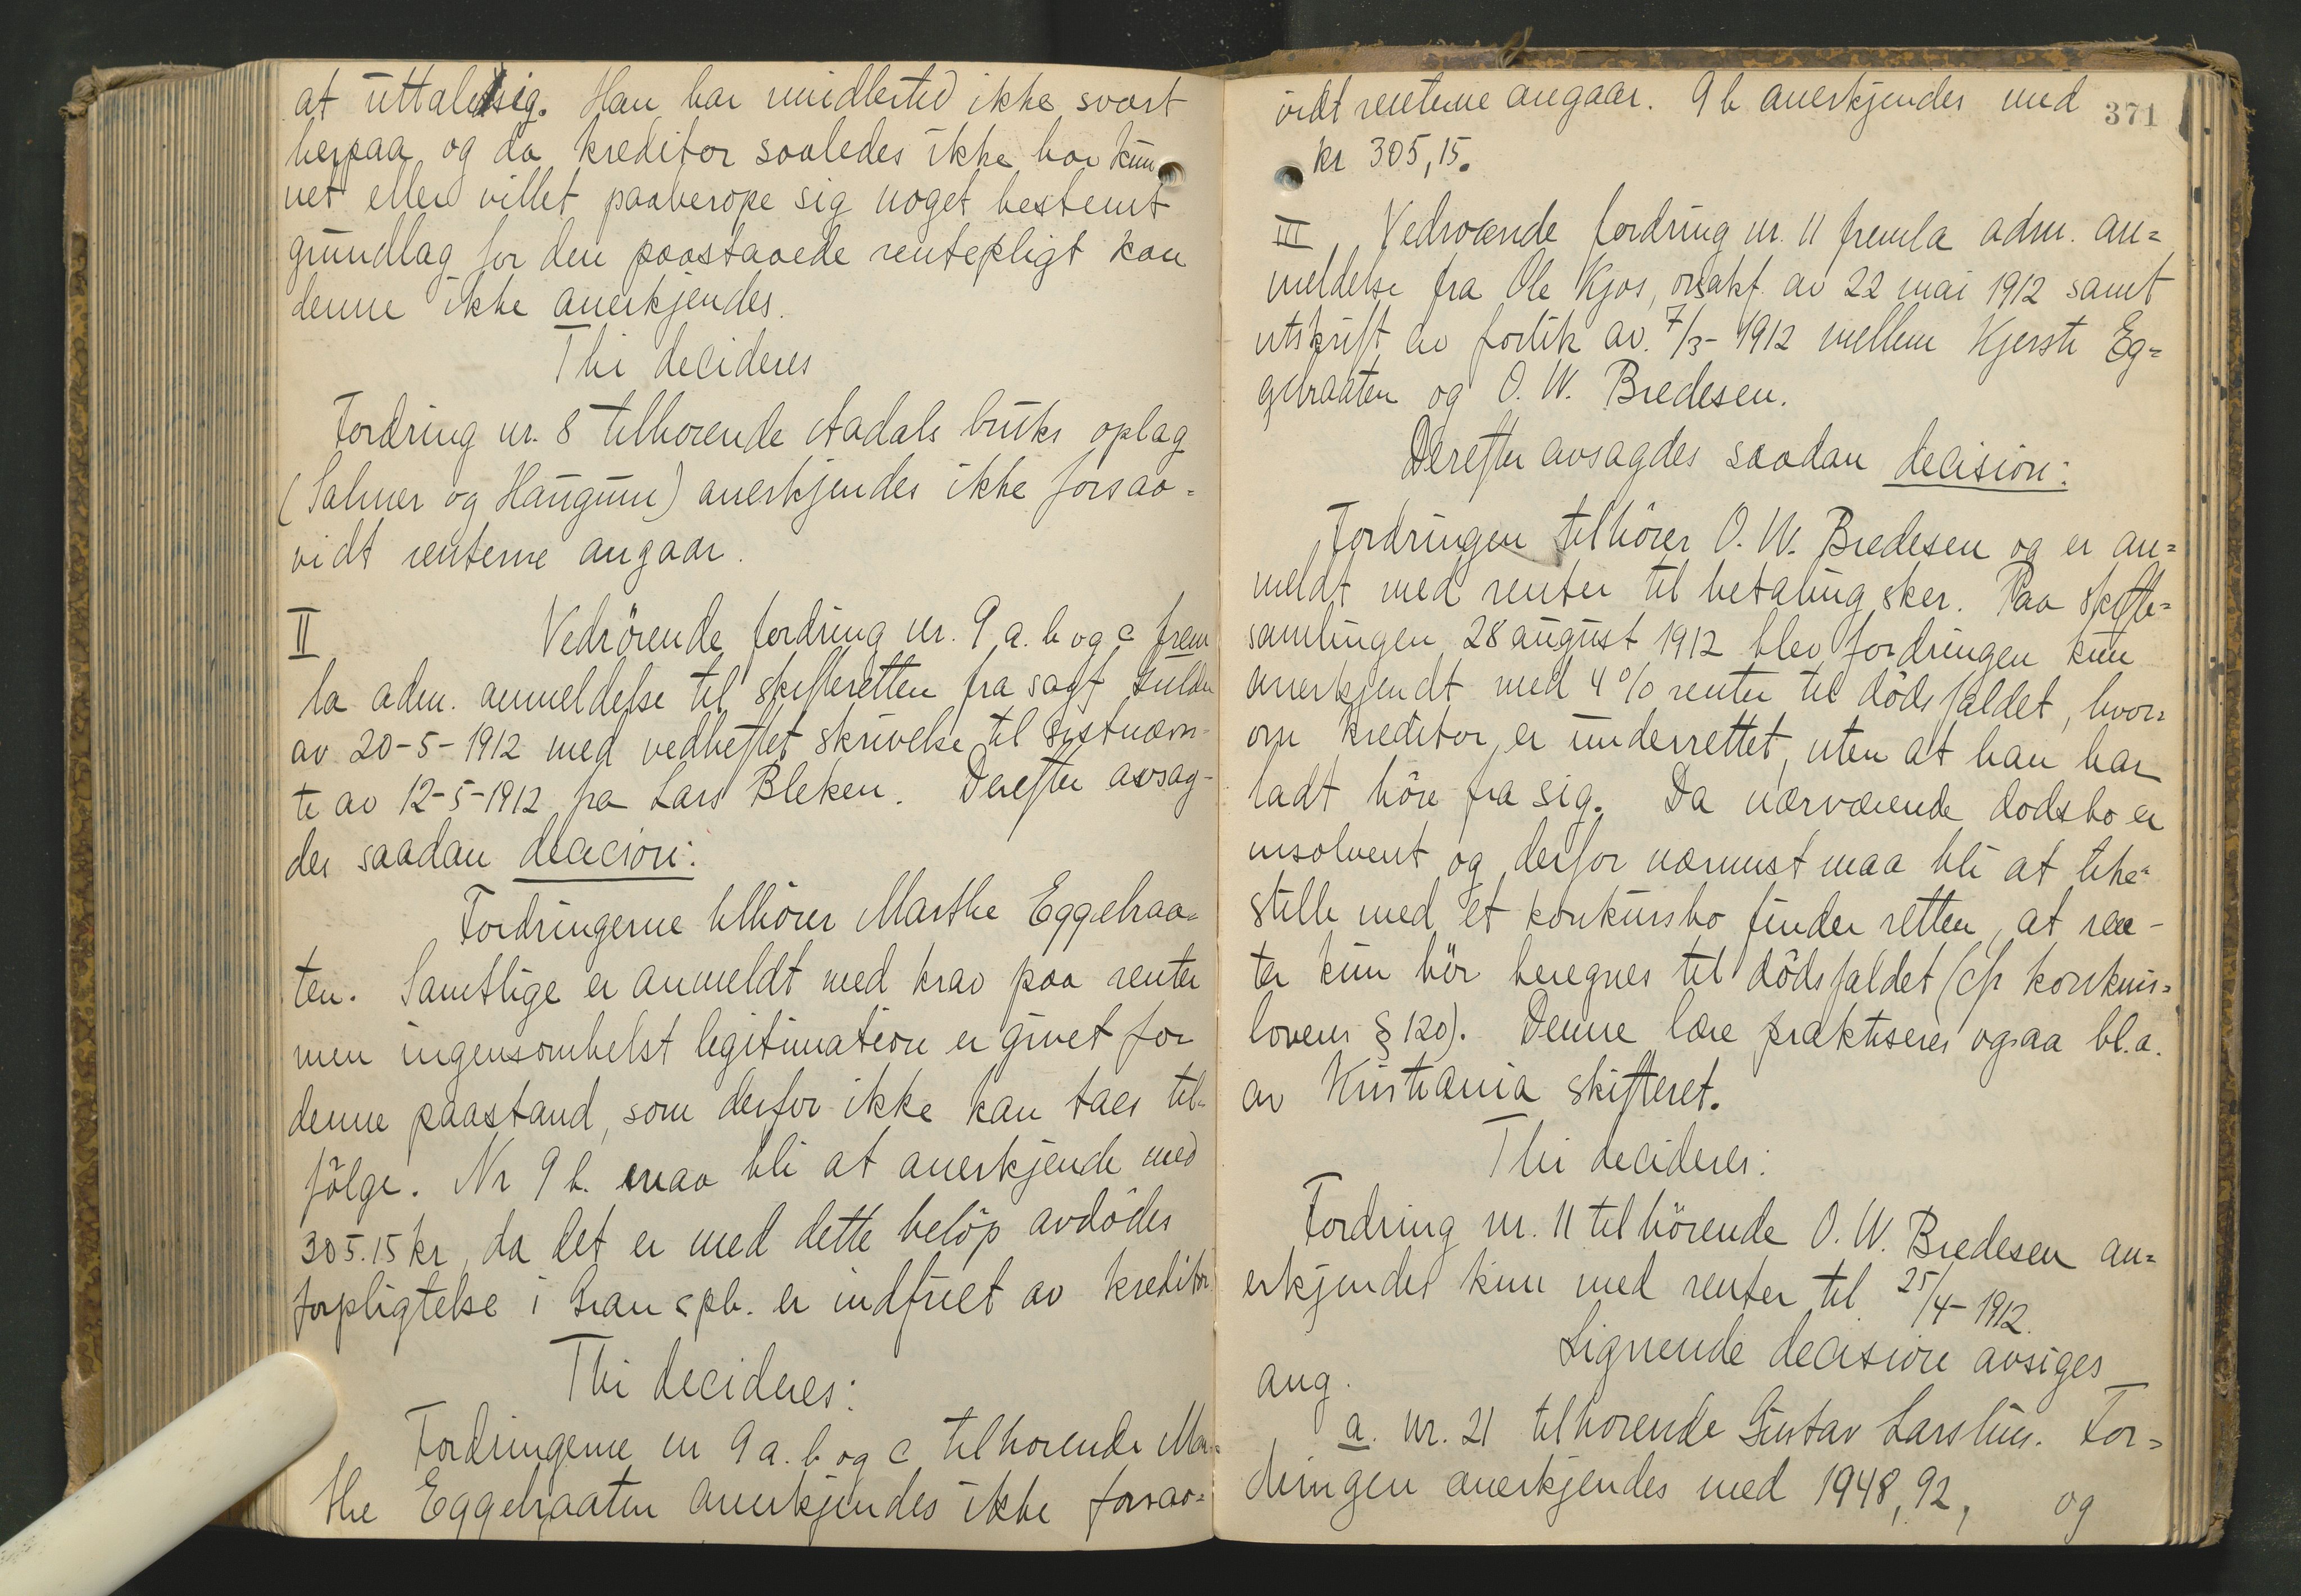 at uttale sig. Han har imidlertid ikke svart
herpaa og da kreditor saaledes ikke har kun
net eller villet paaberope sig noget bestemt
grundlag for den paastaaede rentepligt kan
denne ikke anerkjendes.
Thi decideres
Fordring nr. 8 tilhorende Aadals bruks oplag
(Salmer og Haugum) anerkjendes ikke forsaa=
vidt renterne angaar.
II Vedrörende fordring nr. 9 a. b og c frem
la adm. anmeldelse til skifteretten fra sagf.
av 20-5-1912 med vedheftet skrivelse til sistnævn-
te av 12-5-1912 fra Lars Bleken. Derefter avsag-
des saadan decision:
Fordringerne tilhörer Marthe Eggebraa=
ten. Samtlige er anmeldt med krav paa renter
men ingensomhelst legitimation er givet for
denne paastand, som derfor ikke kan taes til-
fölge. Nr 9 b. maa bli at anerkjende med
305.15 kr, da det er med dette belöp avdödes
forpligtelse i Gran spb. er indfriet av kreditor
Thi decideres:
Fordringerne nr 9 a. b og c tilhorende Mar=
the Eggebraaten anerkjendes ikke forsaa=
371
vidt renterne angaar. 9 b anerkjendes med
kr 305,15.
III Vedrörende fordring nr. 11 fremla adm. an=
meldelse fra Ole Kjos, o.r.sakf. av 22 mai 1912 samt
utskrift av forlik av 7/3-1912 mellem Kjersti Eg=
gebraaten og O. W. Bredesen.
Derefter avsagdes saadan decision:
Fordringen tilhörer O. W. Bredesen og er an=
meldt med renter til betaling sker. Paa skifte=
samlingen 28 august 1912 blev fordringen kun
anerkjendt med 4 % renter til dödsfaldet, hvor=
om kreditor er underrettet, uten at han har
ladt höre fra sig. Da nærværende dodsbo er
insolvent og derfor nærmest maa bli at like=
stille med et konkursbo finder retten, at ren-
ter kun bör beregnes til dödsfaldet (cfr konkurs=
lovens § 120). Denne lære praktiseres ogsaa bl.a.
av Kristiania skifteret.
Thi decideres:
Fordring nr. 11 tilhörende O. W. Bredesen an=
erkjendes kun med renter til 25/4-1912.
Lignende decision avsiges
ang.
a. nr. 21 tilhorende Gustav Larslien. For=
dringen anerkjendes med 1948,92, og